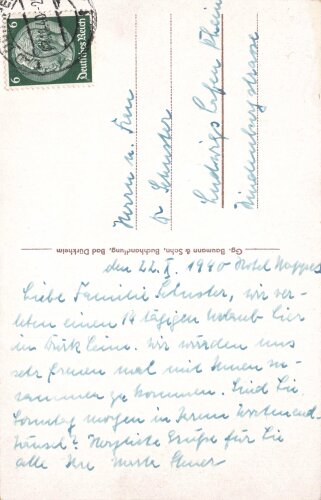 6 Deutsches Reich 6
Herrn u. Frau
Schuster
Ludwigshafen Rhein
Hindenburgstrasse
Gg. Baumann & Sohn, Buchhandlung, Bad Dürkheim
den 22. X. 1940 Hotel
Liebe Familie Schuster, wir ver-
leben einen 14 tägigen Urlaub hier
in Dürkheim. Wir würden uns
sehr freuen mal mit Ihnen zu-
sammen zu kommen. Sind Sie
Sonntag morgen in Ihrem Wochenend-
häusel? Herzliche Grüße für Sie
alle Ihre